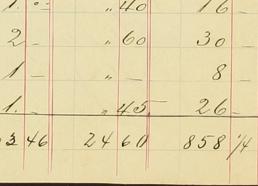 1. 0 - " 40 16 -
2 - " 60 30 -
1 - " - 8 -
1. - " 45. 26 -
346 2460 858 1/4